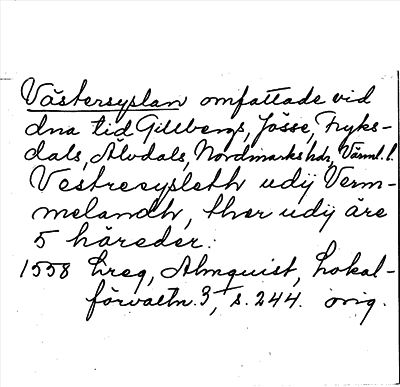 Västersyslan omfattade vid
dna tid Gillbergs, Jösse, Fryks-
dals, Älvdals, Nordmarks hdr, Värml. l.
Vestresysleth udij Verm-
melandh, ther udij äre
5 häreder.
1558 Lreg, Almquist, Lokal-
förvaltn. 3, s. 244. orig.